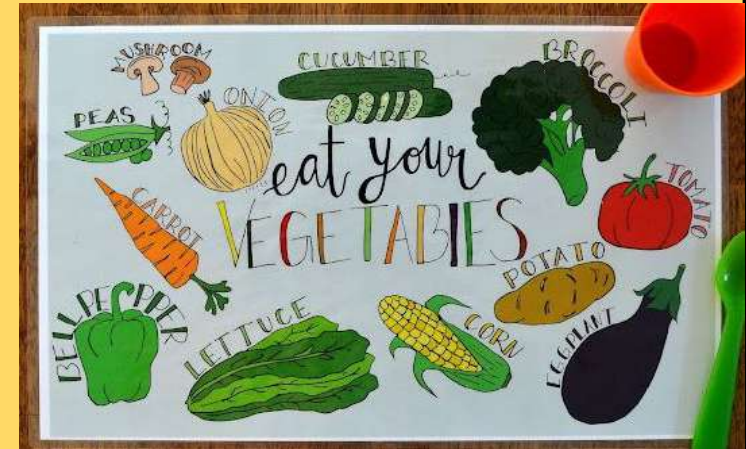 MUSHROOM
CUCUMBER
BROCCOLI
PEAS
ONION
eat your
VEGETABLES
CARROT
TOMATO
POTATO
BELL PEPPER
LETTUCE
CORN
EGGPLANT